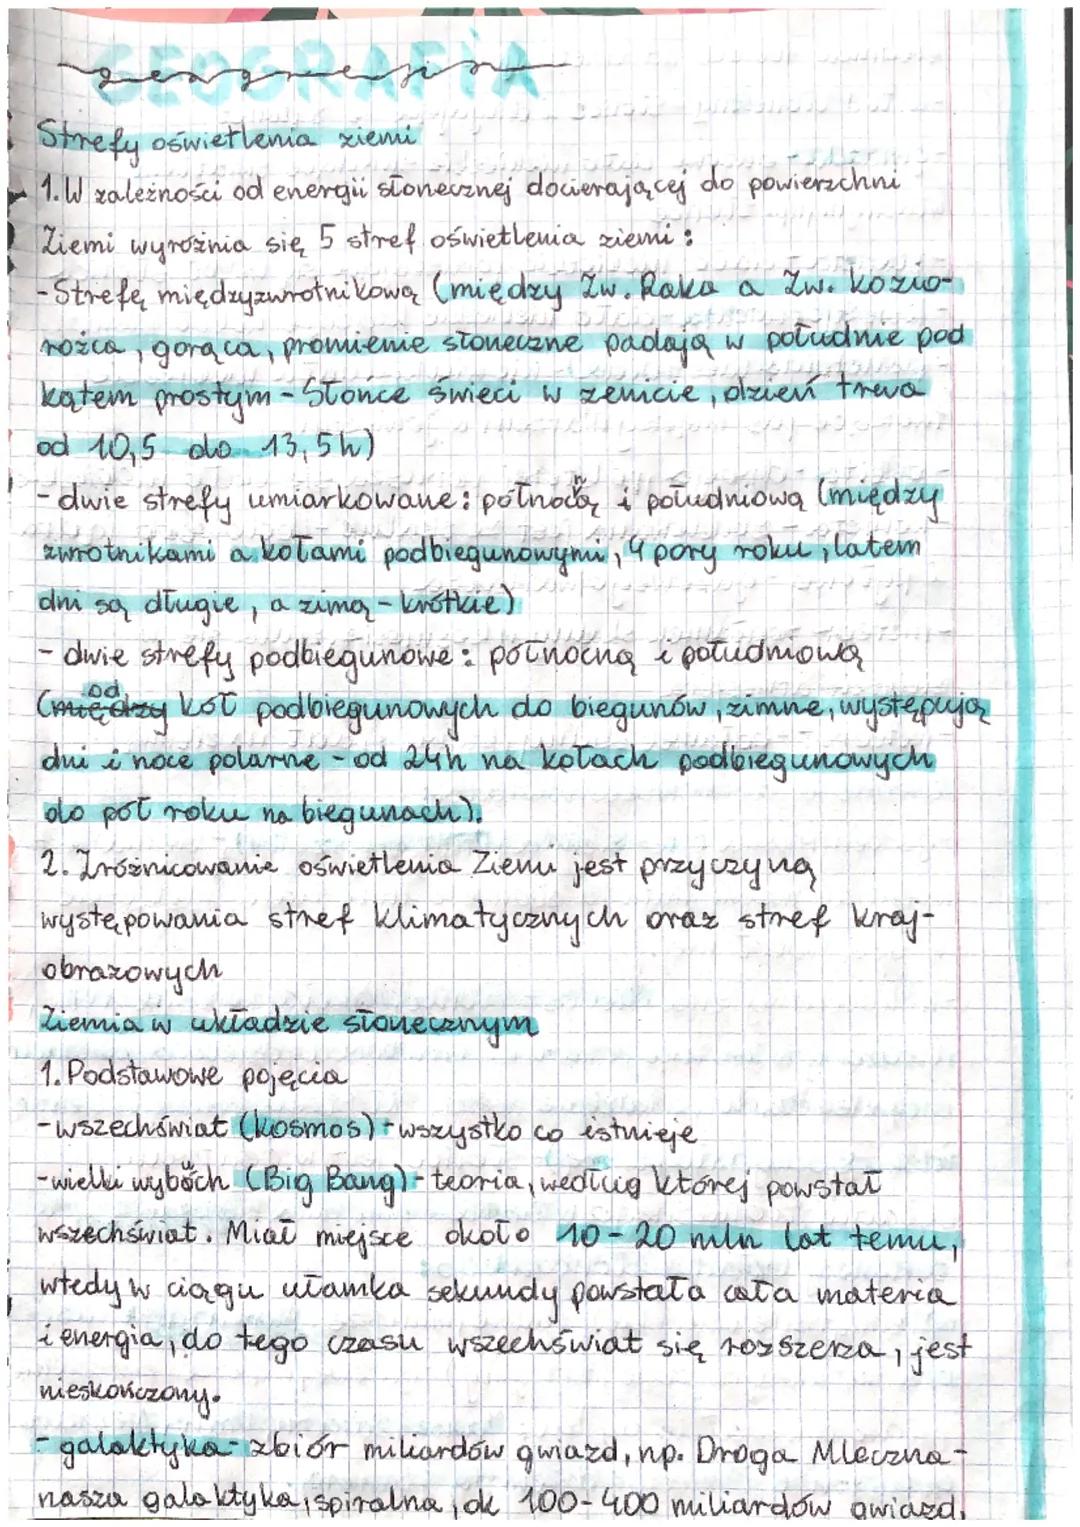 GEOGRAFIA
geografia
Strefy oświetlenia ziemi
1. W zależności od energii słonecznej docierającej do powierzchni
Ziemi wyróżnia się 5 stref oświetlenia ziemi:
- Strefę międzyzwrotnikową (między Zw. Raka a Zw. Kozio-
rożca, gorąca, promienie słoneczne padają w południe pod
kątem prostym - Słońce świeci w zenicie, dzień trwa
od 10,5 do 13,5h)
- dwie strefy umiarkowane: północną i południową (między
zwrotnikami a kołami podbiegunowymi, 4 pory roku, latem
dni są długie, a zimą - krótkie)
- dwie strefy podbiegunowe: północną i południową
(między od kół podbiegunowych do biegunów, zimne, występują
dni i noce polarne - od 24h na kołach podbiegunowych
do pół roku na biegunach).
2. Zróżnicowanie oświetlenia Ziemi jest przyczyną
występowania stref klimatycznych oraz stref kraj-
obrazowych
Ziemia w układzie słonecznym
1. Podstawowe pojęcia
- wszechświat (kosmos) - wszystko co istnieje
- wielki wybuch (Big Bang) - teoria, według której powstał
wszechświat. Miał miejsce około 10-20 mln lat temu,
wtedy w ciągu ułamka sekundy powstała cała materia
i energia, do tego czasu wszechświat się rozszerza, jest
nieskończony.
- galaktyka - zbiór miliardów gwiazd, np. Droga Mleczna -
nasza galaktyka, spiralna, ok 100-400 miliardów gwiazd,